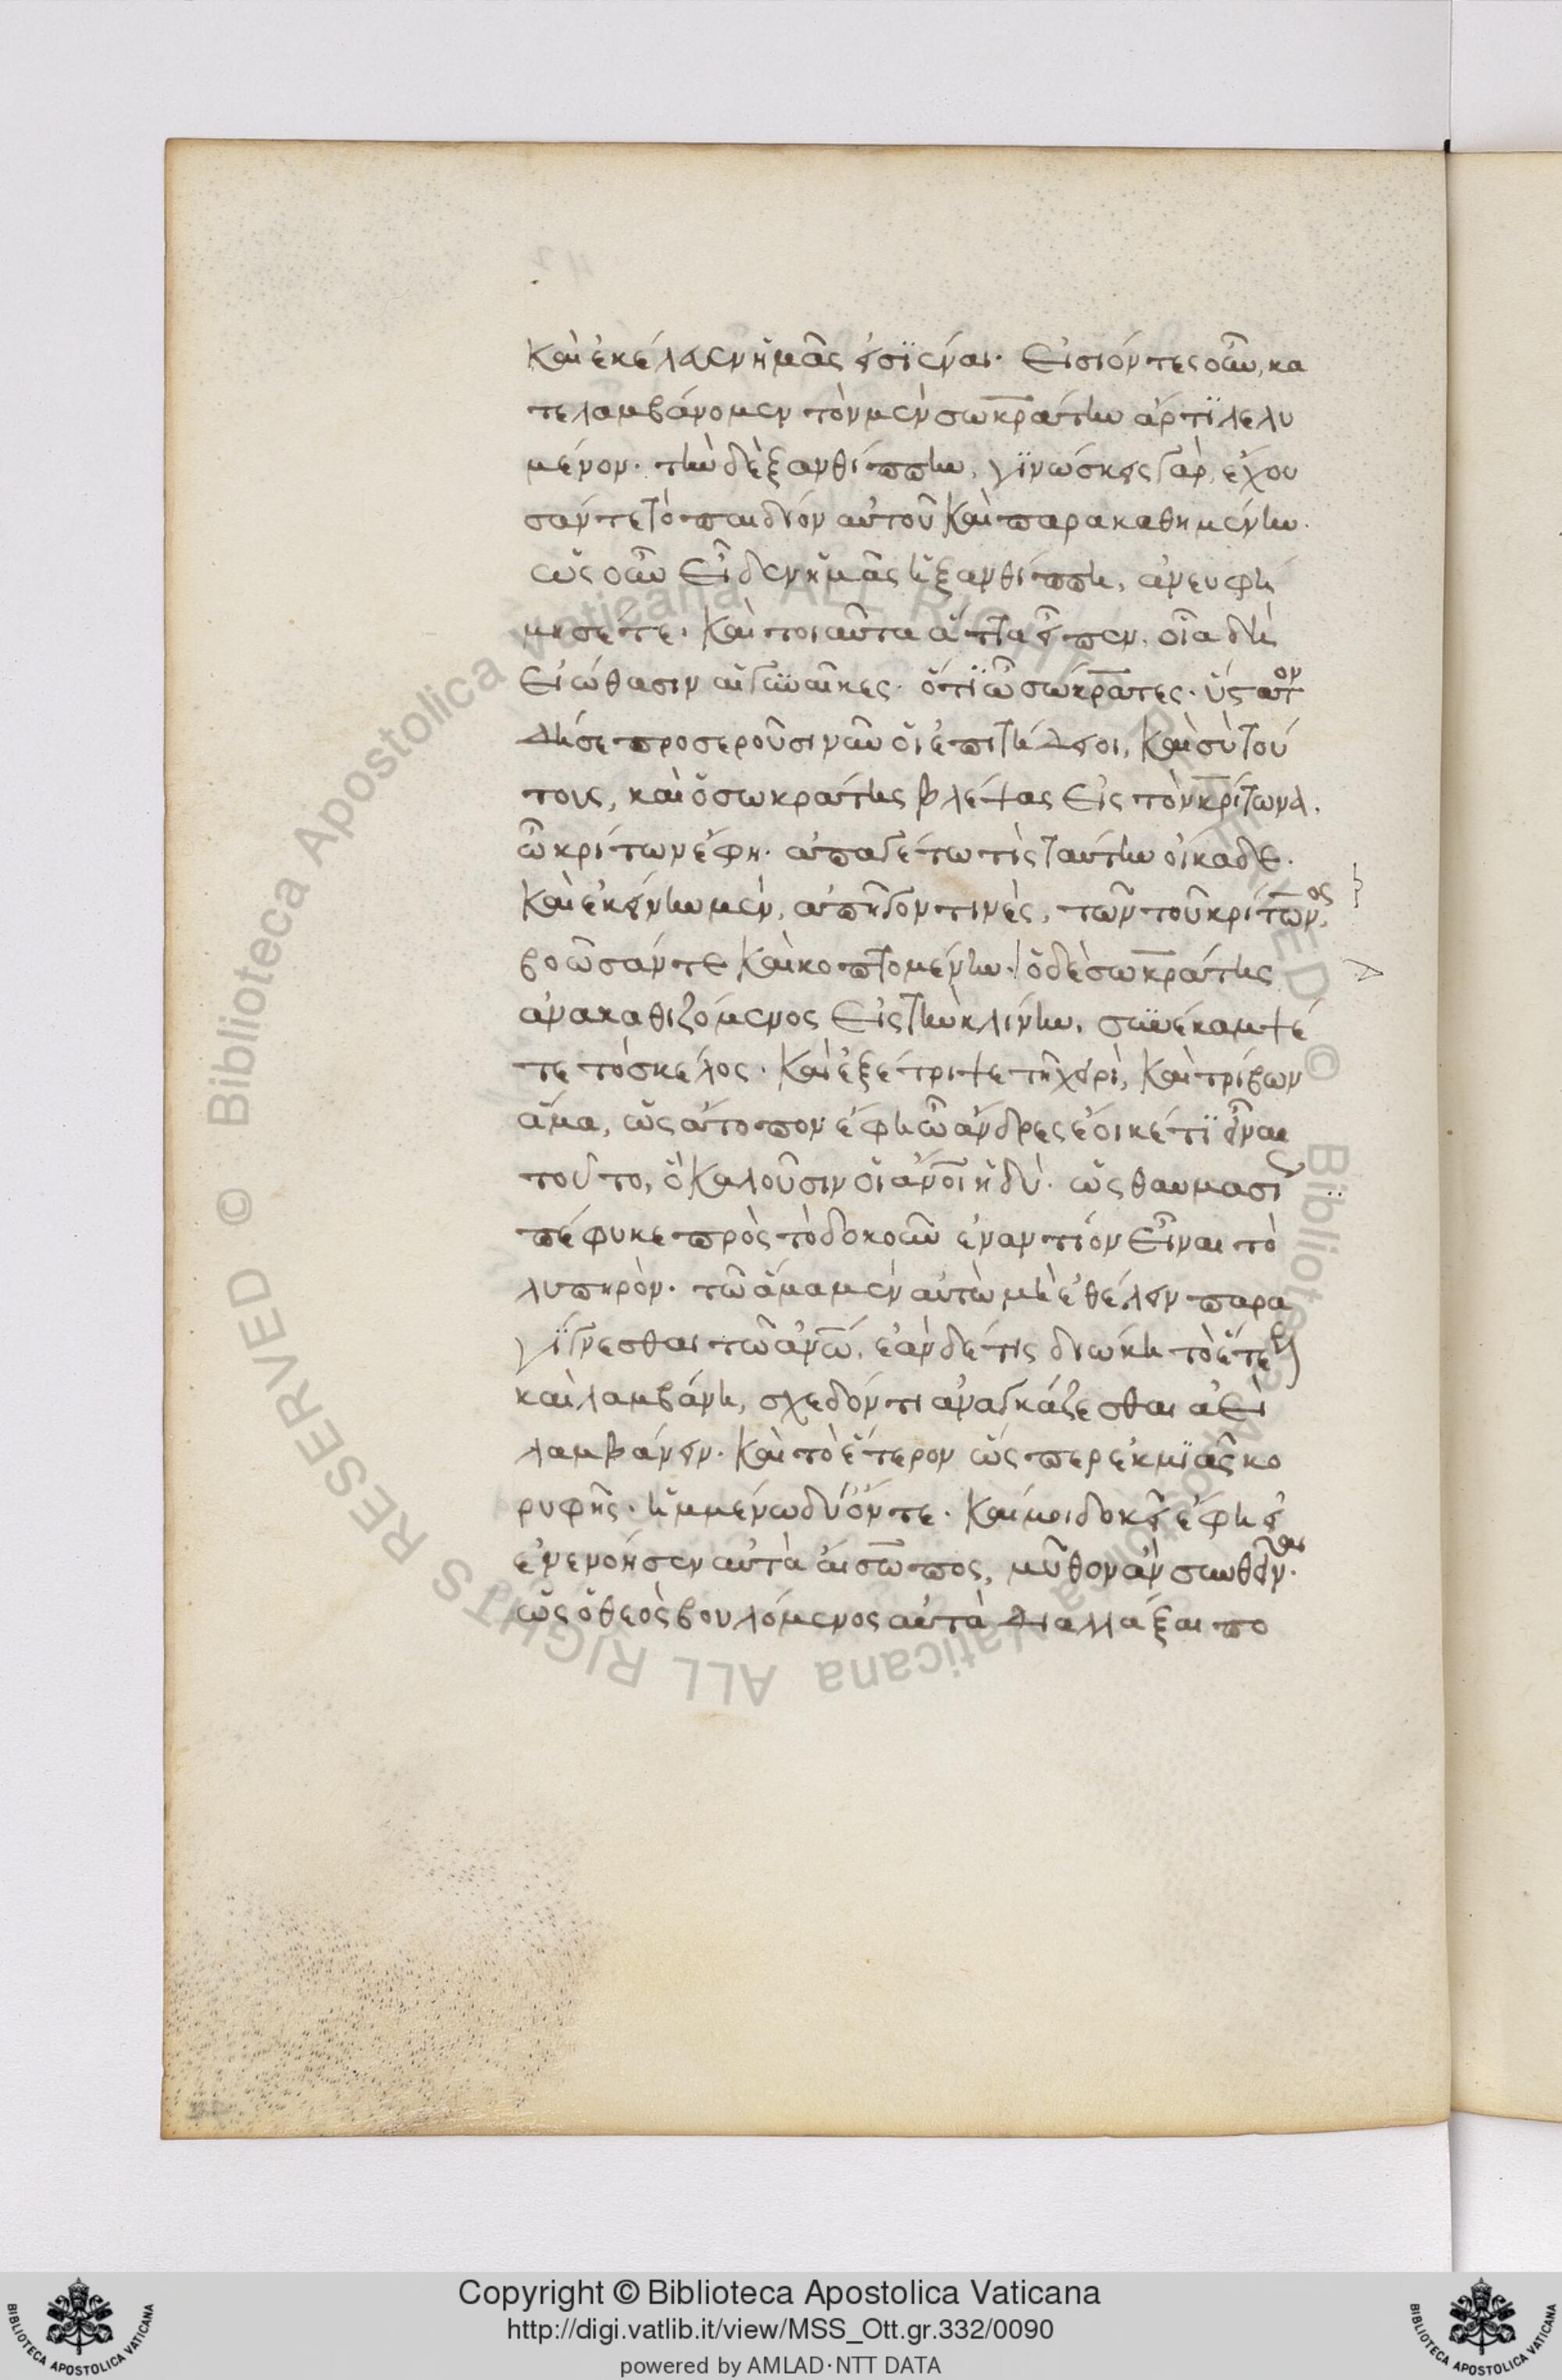 καὶ ἐκέλευεν ἡμᾶς εἰσϊέναι· Εἰσιόντες οὖν, κα
τελαμβάνομεν τὸν μὲν σωκράτην ἄρτϊ λελυ
μένον· τὴν δὲ ξανθίππην, γϊνώσκεις γὰρ, ἔχου
σάν τε τὸ παιδίον αὐτοῦ καὶ παρακαθημένην·
ὡς οὖν εἶδεν ἡμᾶς ἡ ξανθίππη, ἀνευφή
μησέ τε· καὶ τοιαῦτα ἄττα εἶπεν· οἷα δὴ
εἰώθασιν αἱ γυναῖκες· ὅτϊ ὦ σώκρατες· ὕστατον
δή σε προσεροῦσι νῦν οἱ ἐπιτήδειοι, καὶ σὺ τού
τους, καὶ ὁ σωκράτης βλέψας εἰς τὸν κρίτωνα.
ὦ κρίτων ἔφη· ἀπαγέτω τὶς ταύτην οἴκαδε·
καὶ ἐκείνην μὲν, ἀπῆγον τινὲς, τῶν τοῦ κρίτωνος,
βοῶσάν τε καὶ κοπτομένην· ὁ δὲ σωκράτης
ἀνακαθιζόμενος εἰς τὴν κλίνην, συνέκαμψέ
τε τὸ σκέλος· καὶ ἐξέτριψε τῇ χειρὶ, καὶ τρίβων
ἅμα, ὡς ἄτοπον ἔφη ὦ ἄνδρες ἔοικέ τϊ εἶναι
τοῦτο, ὃ καλοῦσιν οἱ ἄνοι ἡδύ· ὡς θαυμασί̈ως
πέφυκε πρὸς τὸ δοκοῦν ἐναντίον εἶναι τὸ
λυπηρόν· τῶ ἅμα μὲν αὐτὼ μὴ ἐθέλειν παρα
γίγνεσθαι τῶ ἀνω, ἐὰν δέ τις διώκη τὸ ἕτερον
καὶ λαμβάνη, σχεδόν τι ἀναγκάζεσθαι ἀεὶ
λαμβάνειν· καὶ τὸ ἕτερον ὥσπερ ἐκ μϊᾶς κο
ρυφῆς· ἡμμένω δύ' ὄντε· καί μοι δοκεῖ ἔφη εἰ
ἐνενόησεν αὐτὰ αἴσωπος, μῦθον ἂν συνθεῖναι·
ὡς ὁ θεὸς βουλόμενος αὐτὰ διαλλάξαι πο
Copyright © Biblioteca Apostolica Vaticana
http://digi.vatlib.it/view/MSS_Ott.gr.332/0090
powered by AMLAD·NTT DATA
BIBLIOTECA APOSTOLICA VATICANA
BIBLIOTECA APOSTOLICA VATICANA
© Biblioteca Apostolica Vaticana ALL RIGHTS RESERVED © Biblioteca Apostolica Vaticana ALL RIGHTS RESERVED